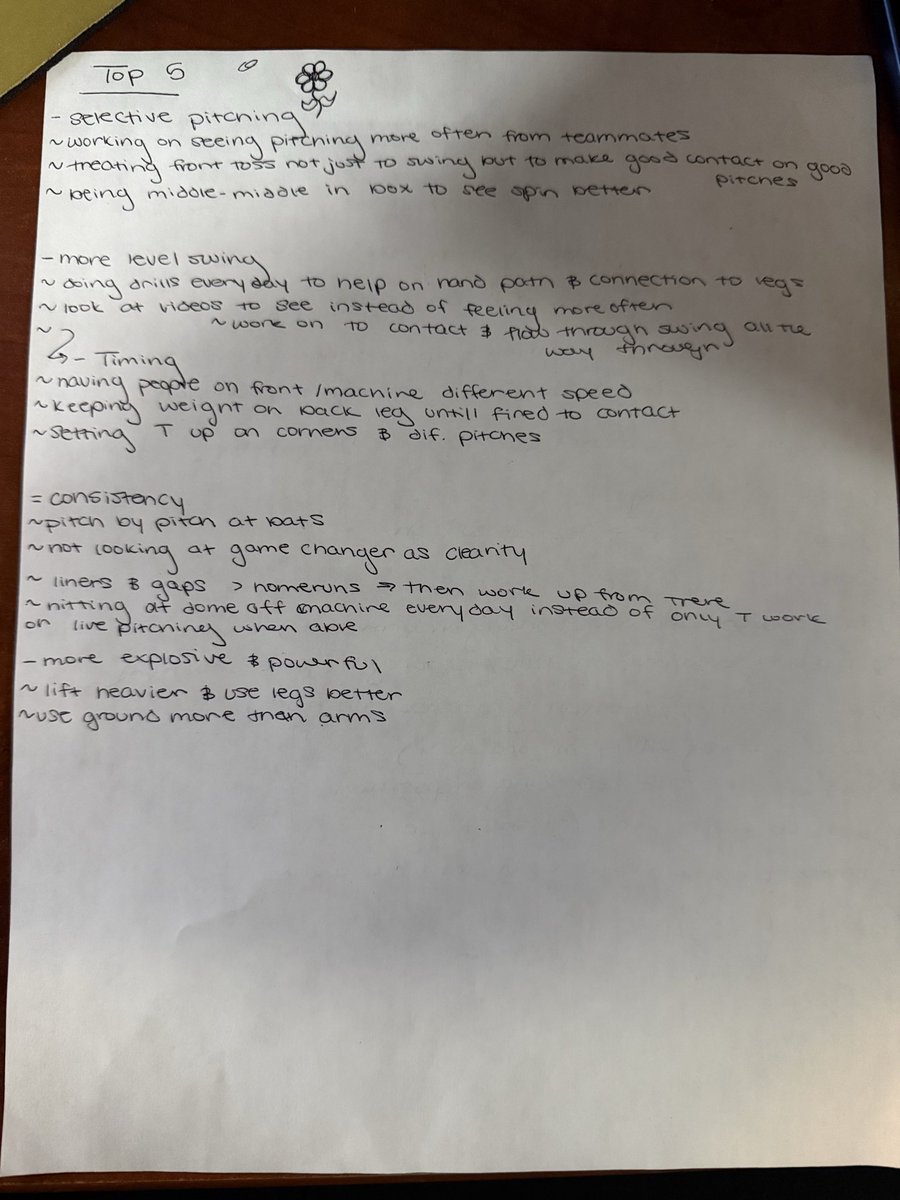 Top 5
- selective pitching
~ working on seeing pitching more often from teammates
~ treating front toss not just to swing but to make good contact on good
pitches
~ being middle-middle in box to see spin better
- more level swing
~ doing drills everyday to help on hand path & connection to legs
~ look at videos to see instead of feeling more often
~
~ work on to contact & through swing all the
way through
- Timing
~ having people on front/machine different speed
~ keeping weight on back leg untill fired to contact
~ Setting T up on corners & dif. pitches
= consistency
~ pitch by pitch at bats
~ not looking at game changer as clearity
~ liners & gaps > homeruns => then work up from there
~ hitting at dome off machine everyday instead of only T work
or live pitching when able
- more explosive & powerful
~ lift heavier & use legs better
~ use ground more than arms